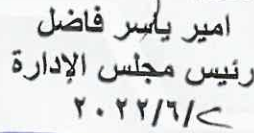 امير ياسر فاضل
رئيس مجلس الإدارة
٢٠٢٢/٦/